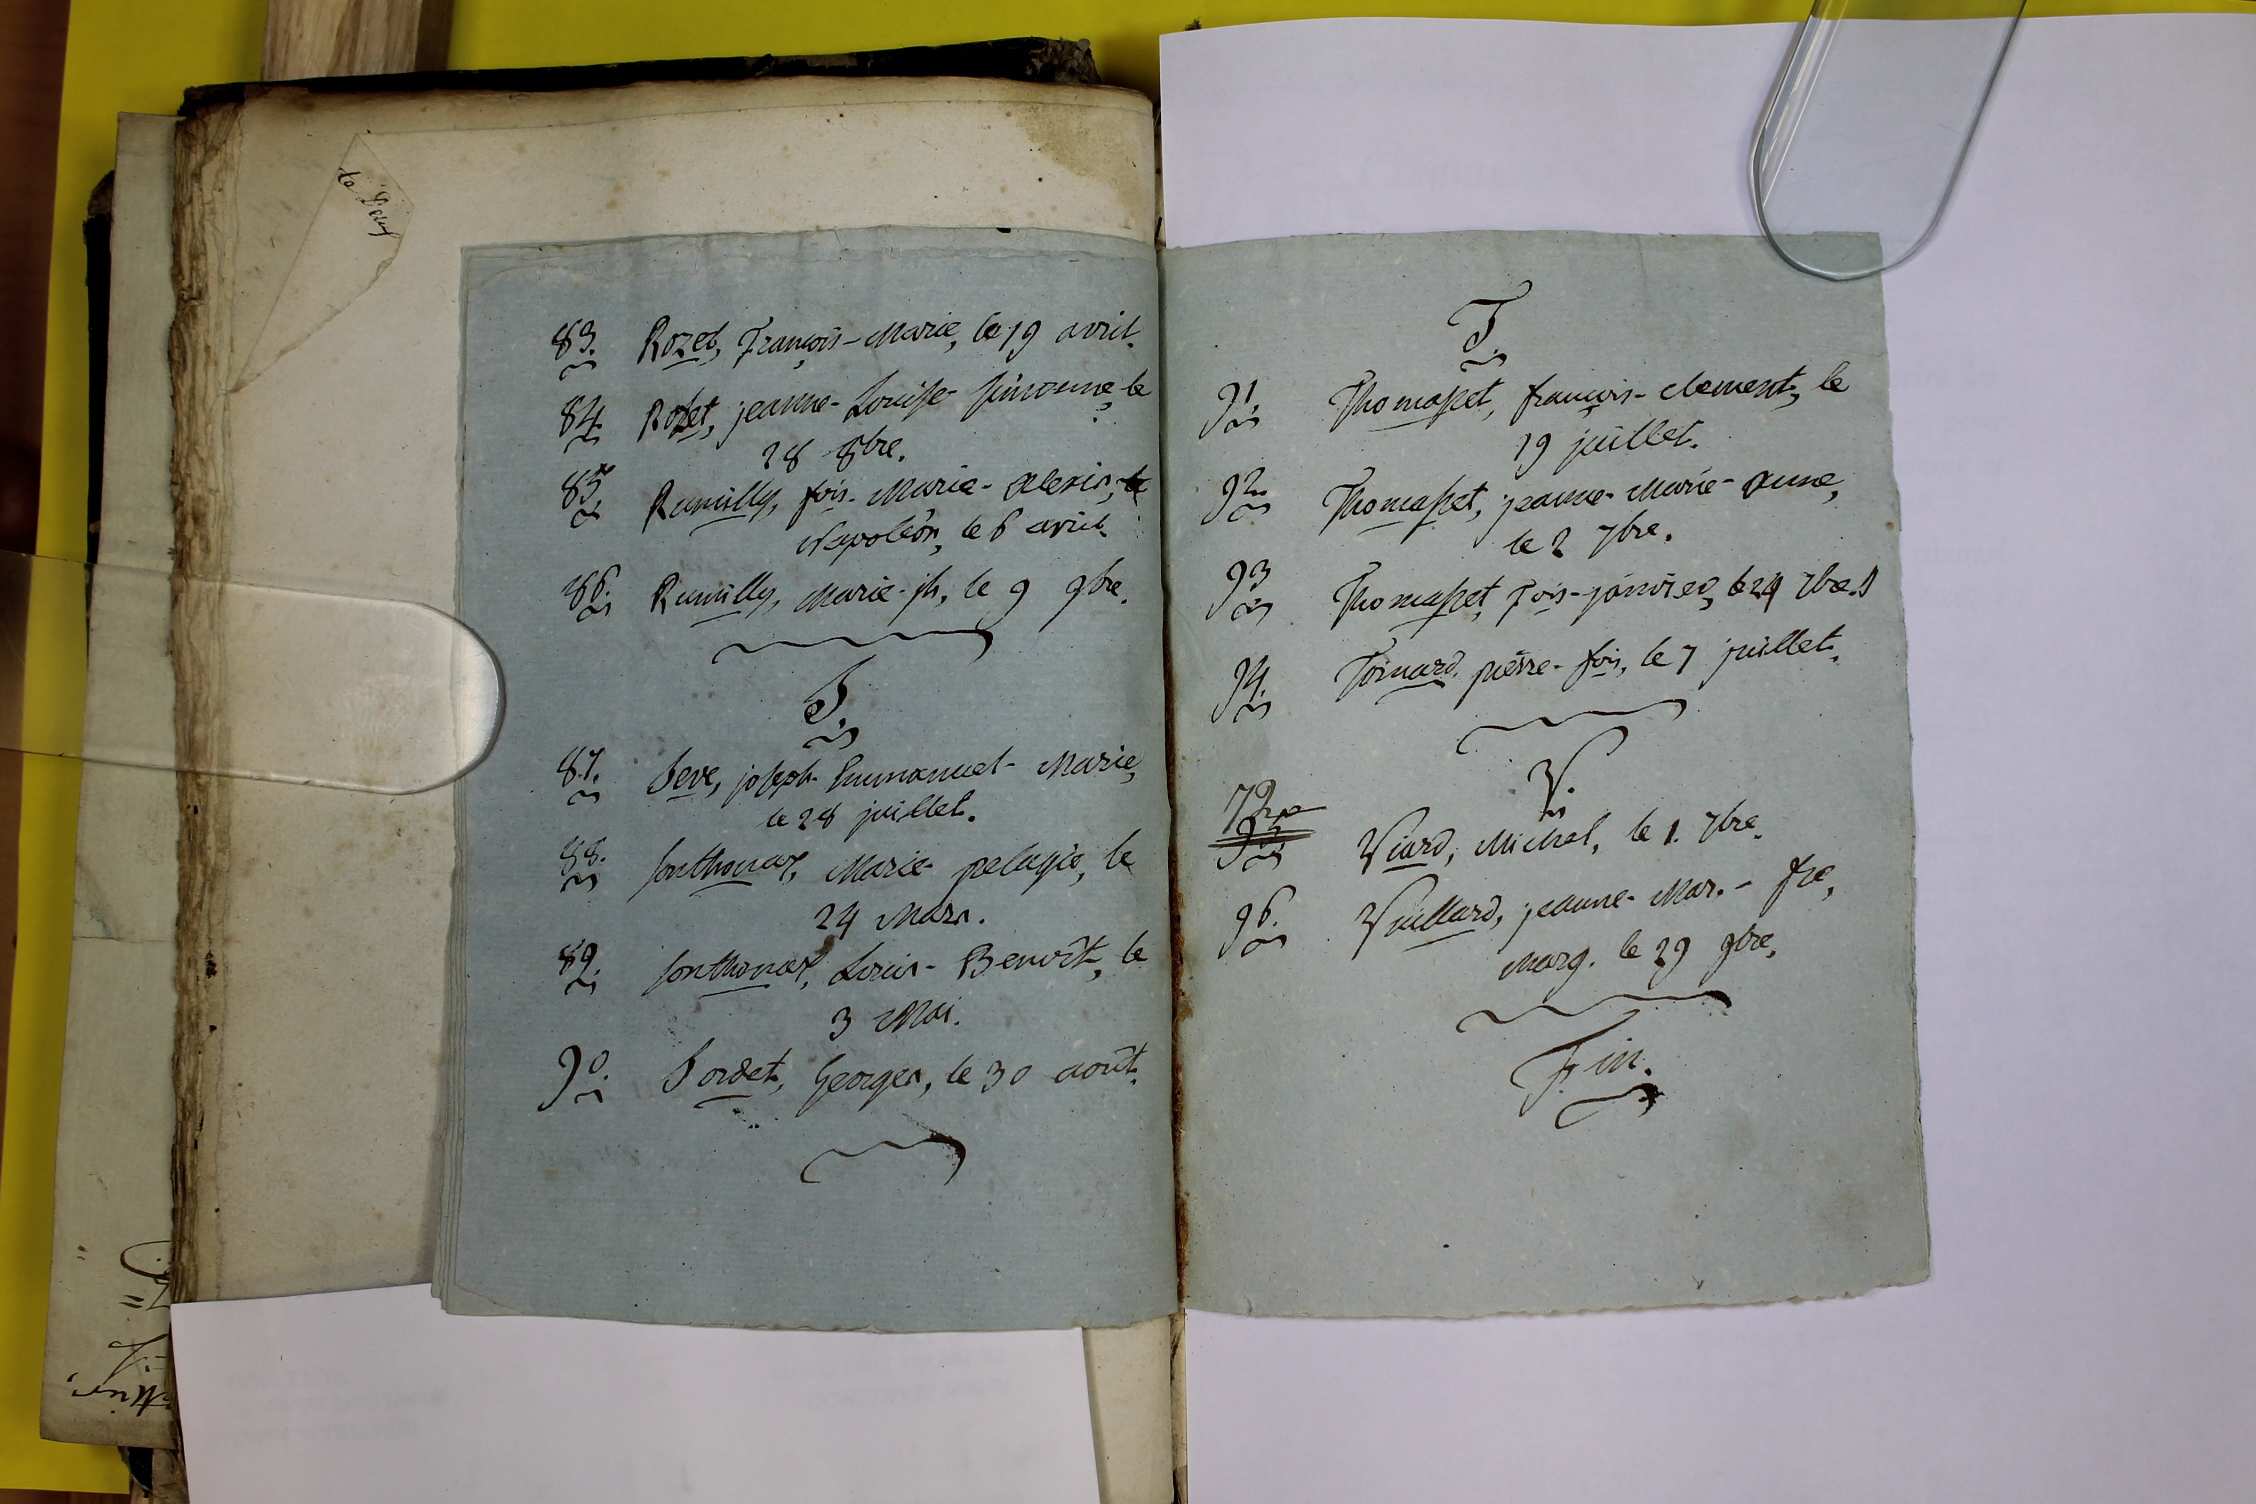 83. Rozet, François-Marie, le 19 avril.
84. Rozet, jeanne-Louise-Simonne, le
28 8bre.
85. Rumilly, fois-Marie-alexis,
Napoléon, le 6 avril.
86. Rumilly, Marie-jh, le 9 9bre.
S.
87. Seve, joseph-Emmanuel-Marie,
le 28 juillet.
88. Sonthonax, Marie-pelagie, le
24 Mars.
89. Sonthonax, Louis-Benoît, le
3 Mai.
90. Sordet, Georges, le 30 août.
T.
91. Thomasset, françois-clement, le
19 juillet.
92. Thomasset, jeanne-Marie-anne,
le 2 7bre.
93 Thomasset, fois-janvier, le 24 7bre.
94. Toinard, pierre-fois, le 7 juillet.
V.
95. Viard, Michel, le 1. 7bre.
96. Vuillard, jeanne-Mar.-fse,
Marg. le 29 9bre.
Fin.